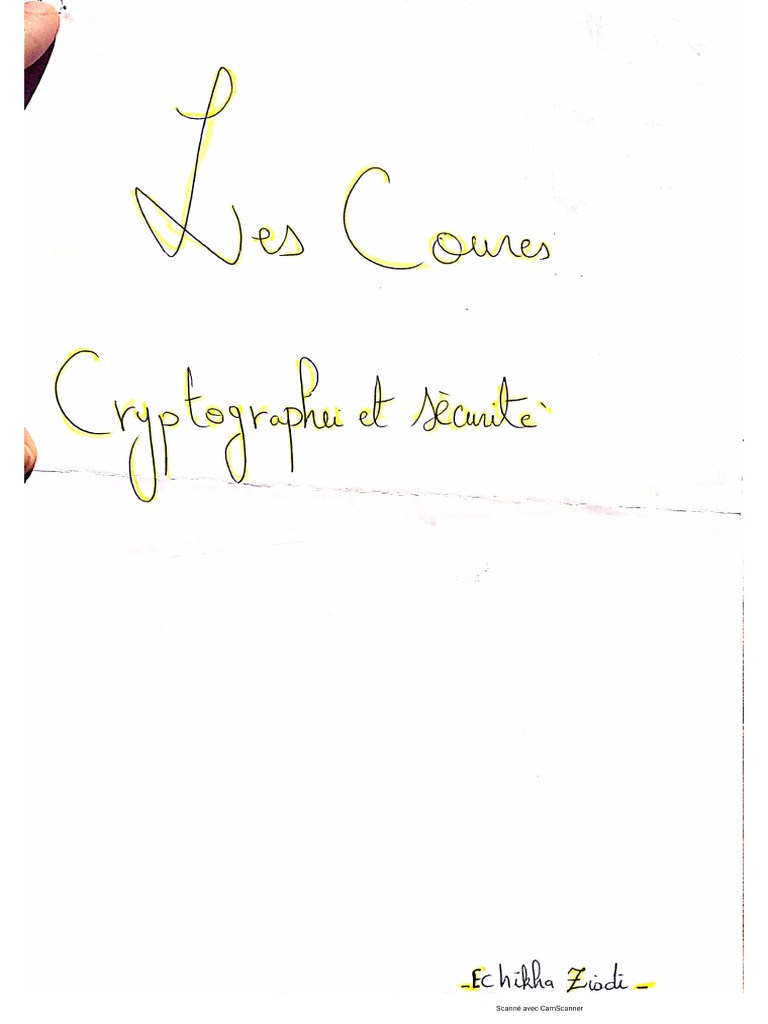 Les Coures
Cryptographie et sécurité
-Echikha Ziadi-
Scanné avec CamScanner